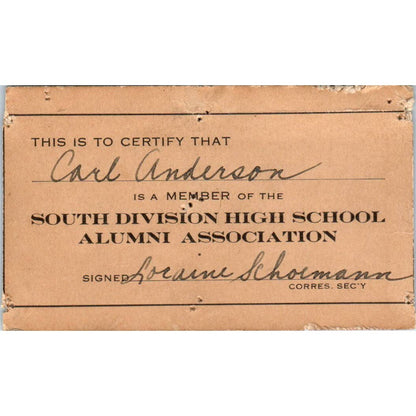 THIS IS TO CERTIFY THAT
Carl Anderson
IS A MEMBER OF THE
SOUTH DIVISION HIGH SCHOOL
ALUMNI ASSOCIATION
SIGNED Loraine Schoemann
CORRES. SEC'Y